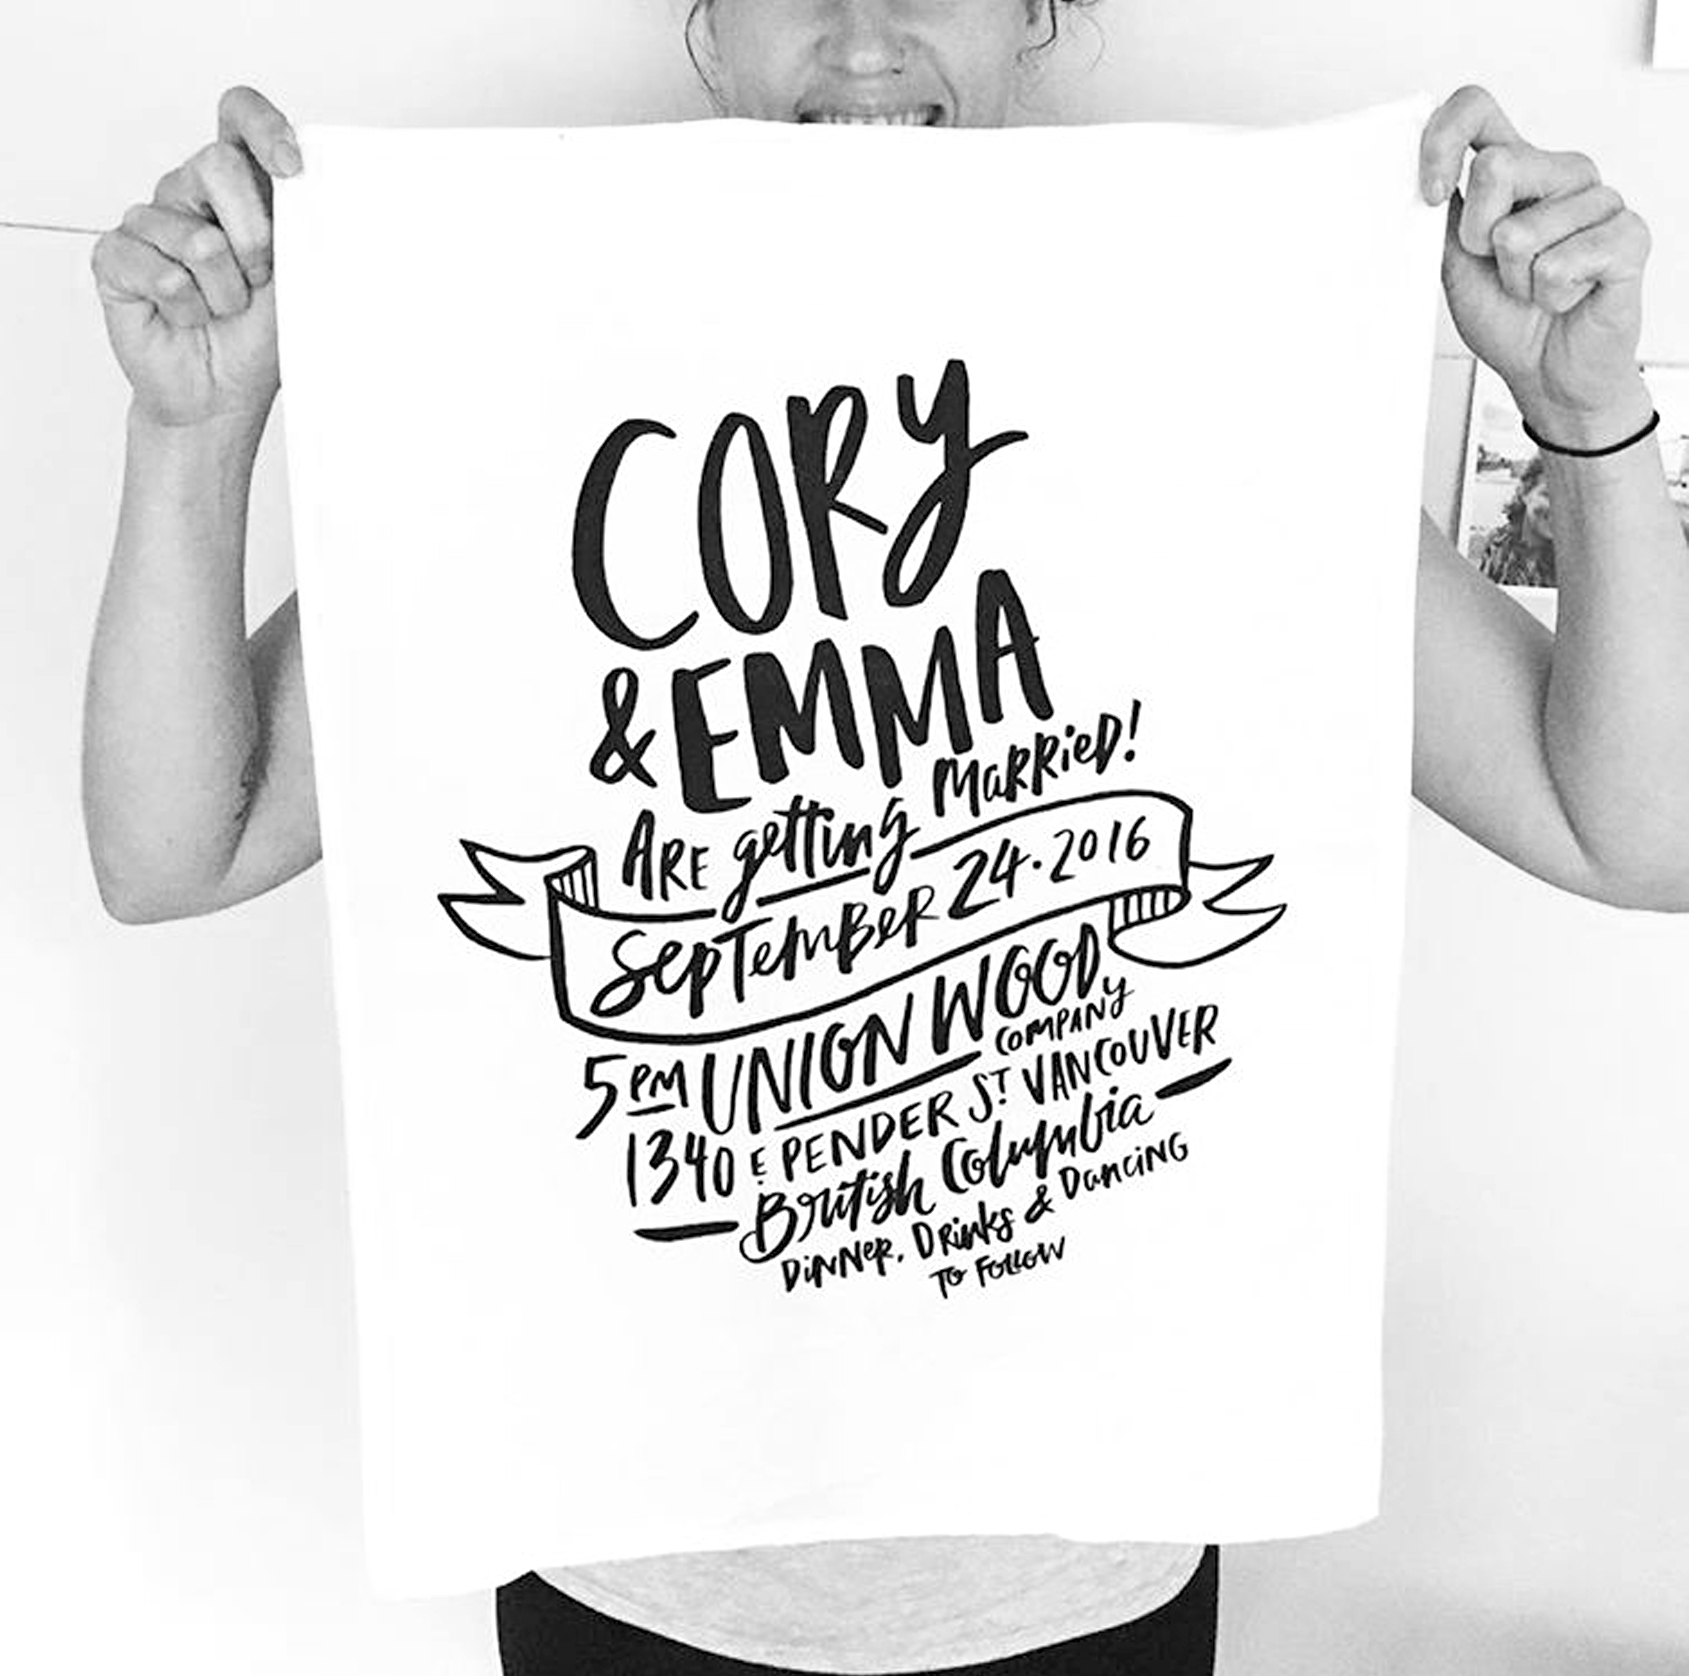 CORY
& EMMA
ARE getting MARRieD!
SepTemBeR 24·2016
5PM UNION WOOD
COMPANY
1340 E PENDER ST VANCOUVER
British Columbia
DiNNeR, DRinks & DanciNG
TO FOLLOW